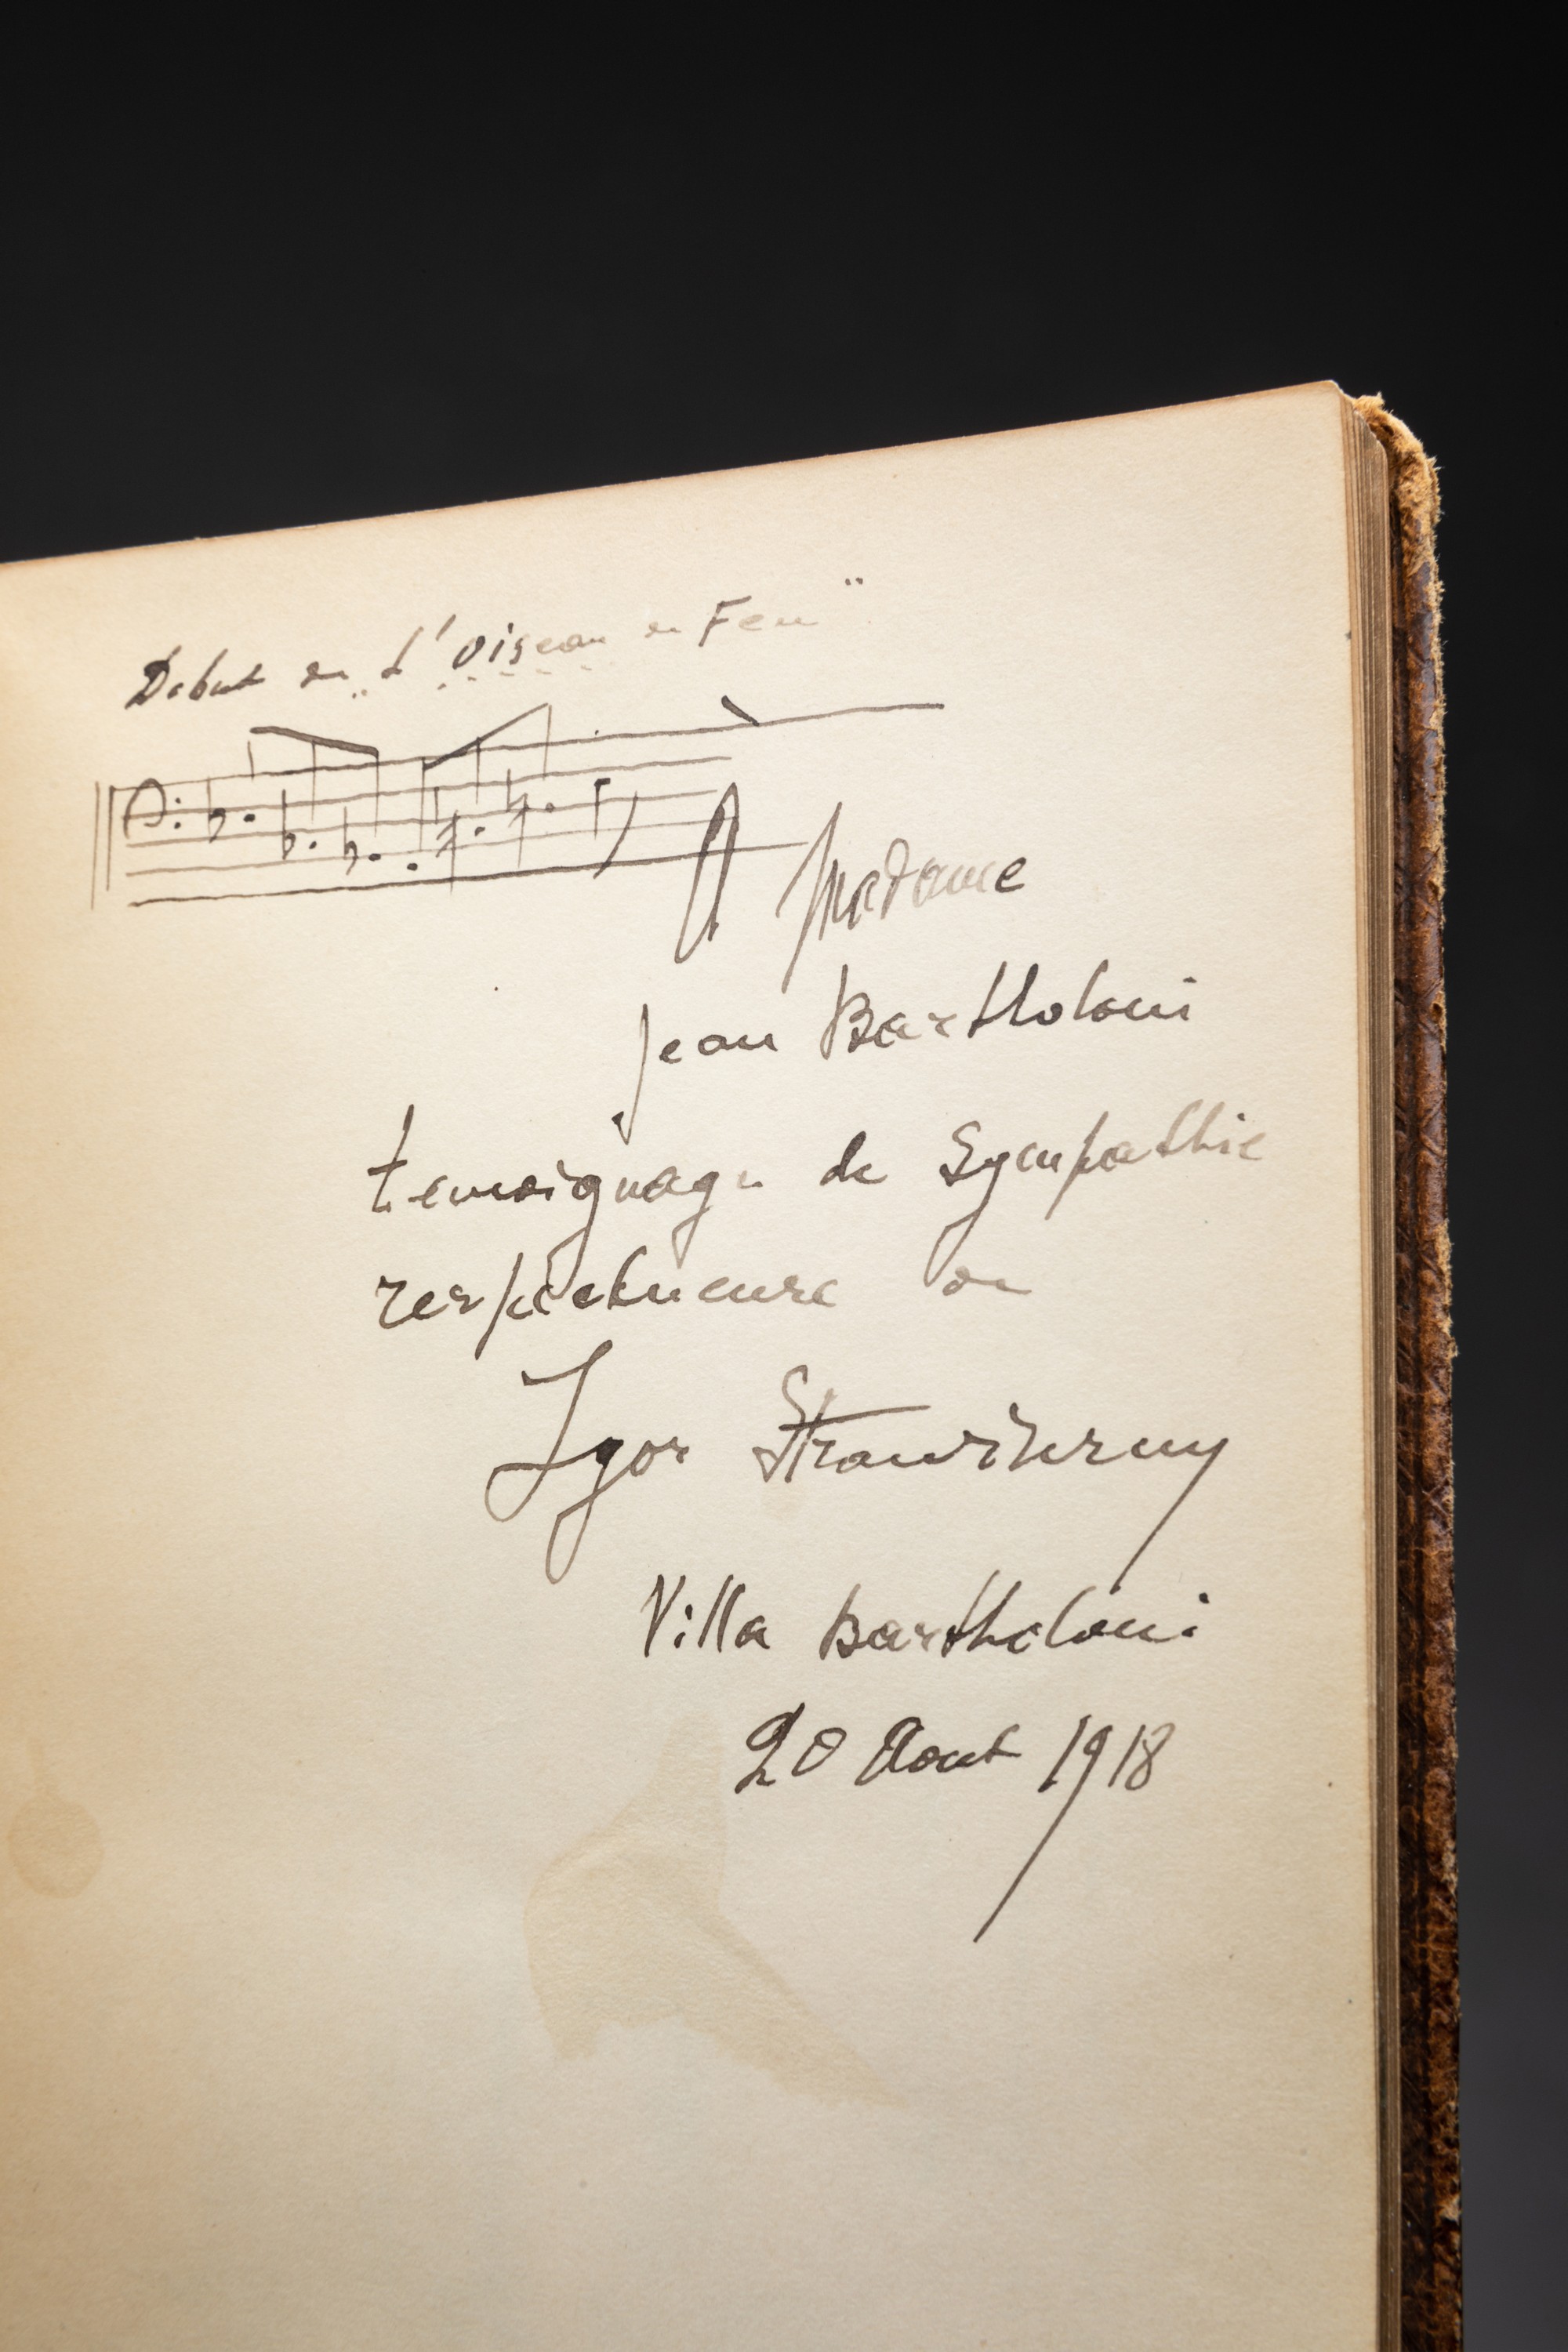 Debut de „L'Oiseau de Feu"
A Madame
Jean Bartholoni
temoignage de Sympathie
respectueuse de
Igor Strawinsky
Villa Bartholoni
20 Aout 1918